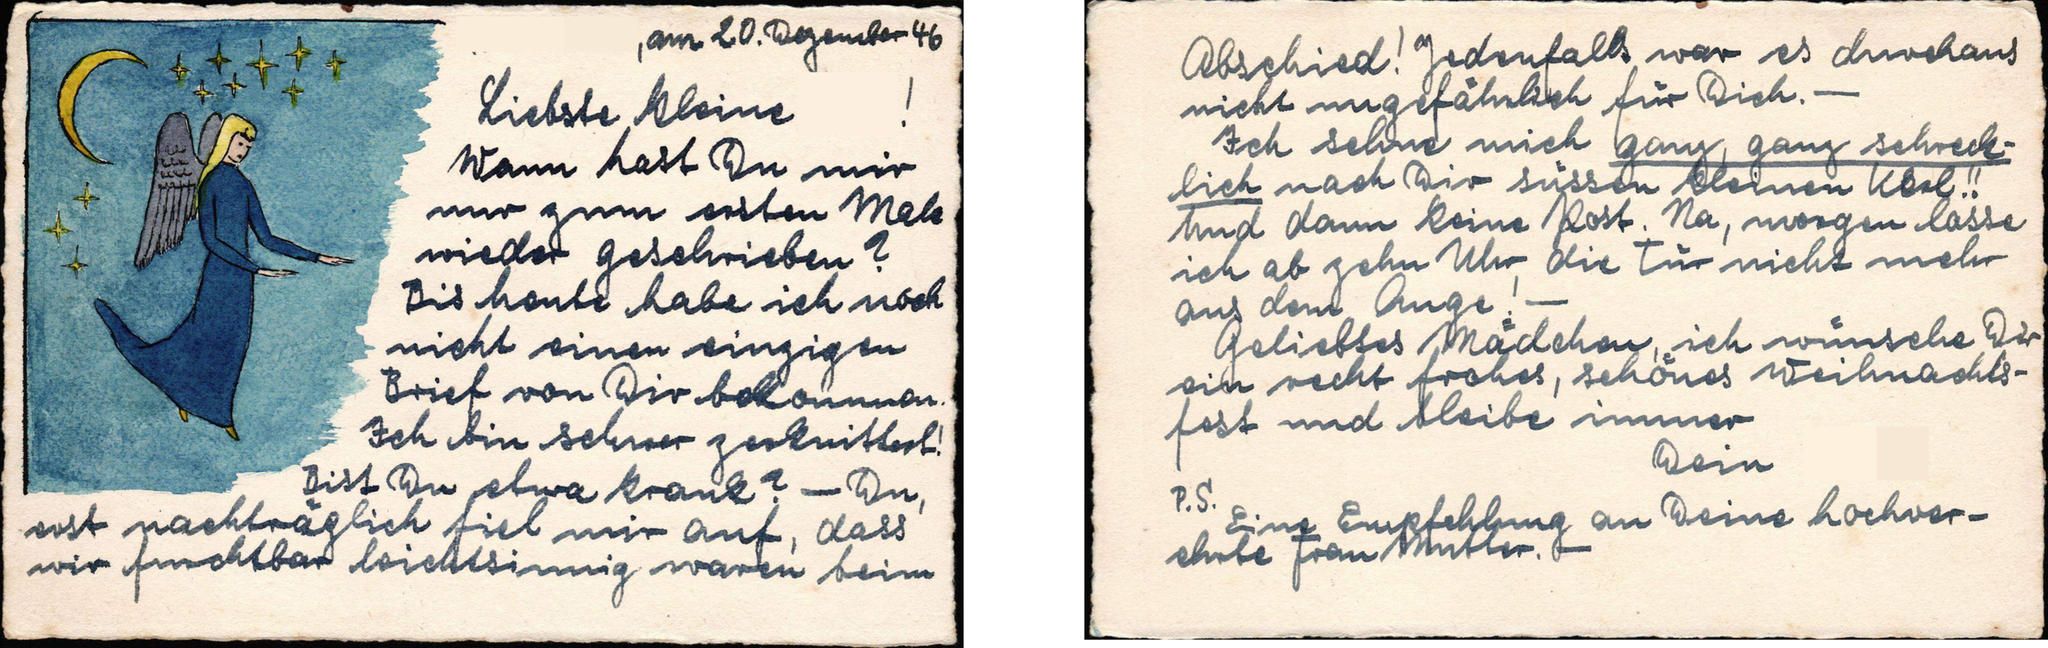 , am 20. Dezember 46
Liebste kleine !
Wann hast Du mir
nur zum ersten Male
wieder geschrieben?
Bis heute habe ich noch
nicht einen einzigen
Brief von Dir bekommen.
Ich bin schwer zerknittert!
Bist Du etwa krank? — Du,
erst nachträglich fiel mir auf, dass
wir furchtbar leichtsinnig waren beim
Abschied! Jedenfalls war es durchaus
nicht ungefährlich für Dich. —
Ich sehne mich ganz, ganz schreck-
lich nach Dir süssen kleinen Kerl!!
Und dann keine Post. Na, morgen lasse
ich ab zehn Uhr die Tür nicht mehr
aus dem Auge! —
Geliebtes Mädchen, ich wünsche Dir
ein recht frohes, schönes Weihnachts-
fest und bleibe immer
Dein
P.S.
Eine Empfehlung an Deine hochver-
ehrte Frau Mutter. —